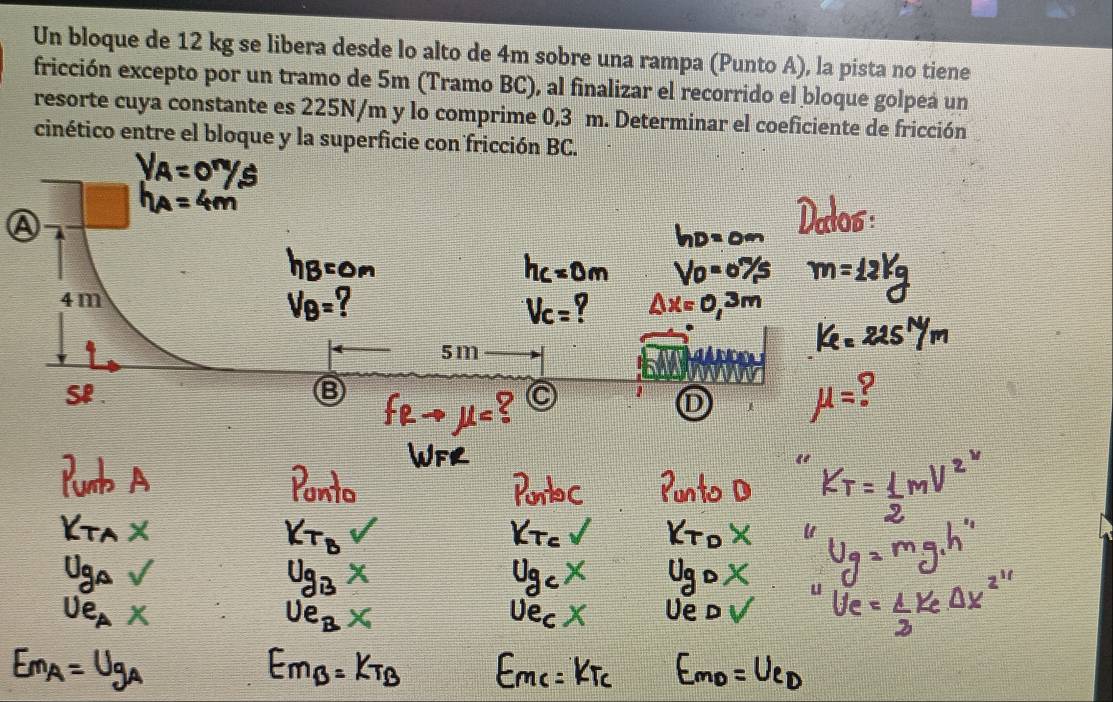 Un bloque de 12 kg se libera desde lo alto de 4m sobre una rampa (Punto A), la pista no tiene
fricción excepto por un tramo de 5m (Tramo BC), al finalizar el recorrido el bloque golpea un
resorte cuya constante es 225N/m y lo comprime 0,3 m. Determinar el coeficiente de fricción
cinético entre el bloque y la superficie con fricción BC.
VA=0m/s
hA=4m
A
4 m
SR.
hB=0m
VB=?
hC=0m
VC=?
hD=0m
VD=0m/s
Δx=0,3m
Datos:
m=12Kg
Ke=225N/m
μ=?
5 m
B
C
D
fR→μ=?
WFR
Punto A
KTA X
UgA ✓
UeA X
Punto
KTB ✓
UgB X
UeB X
Punto C
KTC ✓
UgC X
UeC X
Punto D
KTD X
UgD X
UeD ✓
"KT=1/2 mV²"
"Ug=mg.h"
"Ue=1/2 Ke Δx²"
EmA=UgA
EmB=KTB
EmC=KTC
EmD=UeD